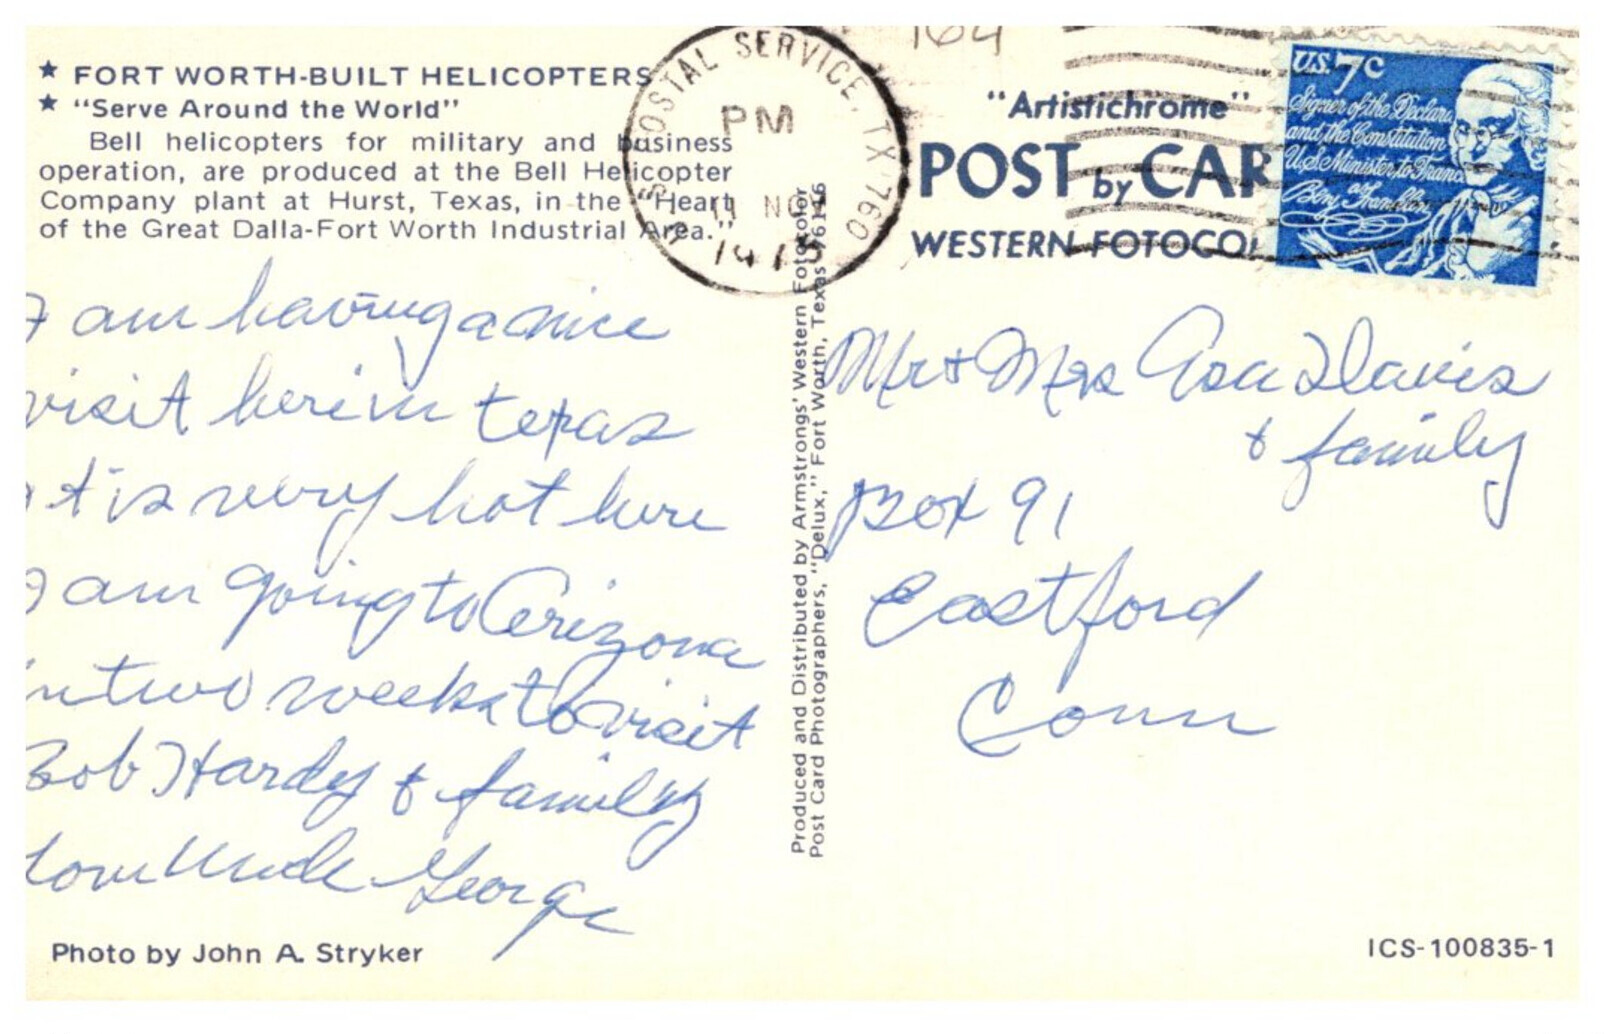 ★ FORT WORTH-BUILT HELICOPTERS
★ "Serve Around the World"
Bell helicopters for military and business
operation, are produced at the Bell Helicopter
Company plant at Hurst, Texas, in the "Heart
of the Great Dalla-Fort Worth Industrial Area."
I am having a nice
visit here in texas
it is very hot here
I am going to Arizona
in two weeks to visit
Bob Hardy & family
love Uncle George
Photo by John A. Stryker
POSTAL SERVICE, TX 760
PM
11 NOV
Produced and Distributed by Armstrongs' Western Fotocolor
Post Card Photographers, "Delux," Fort Worth, Texas 76116
164
"Artistichrome"
POST by CAR
WESTERN FOTOCOL
U.S. 7c
Signer of the Declara
and the Constitution
U.S. Minister to France
Benj Franklin
Mr & Mrs Asa Davis
& family
Box 91
Eastford
Conn
ICS-100835-1